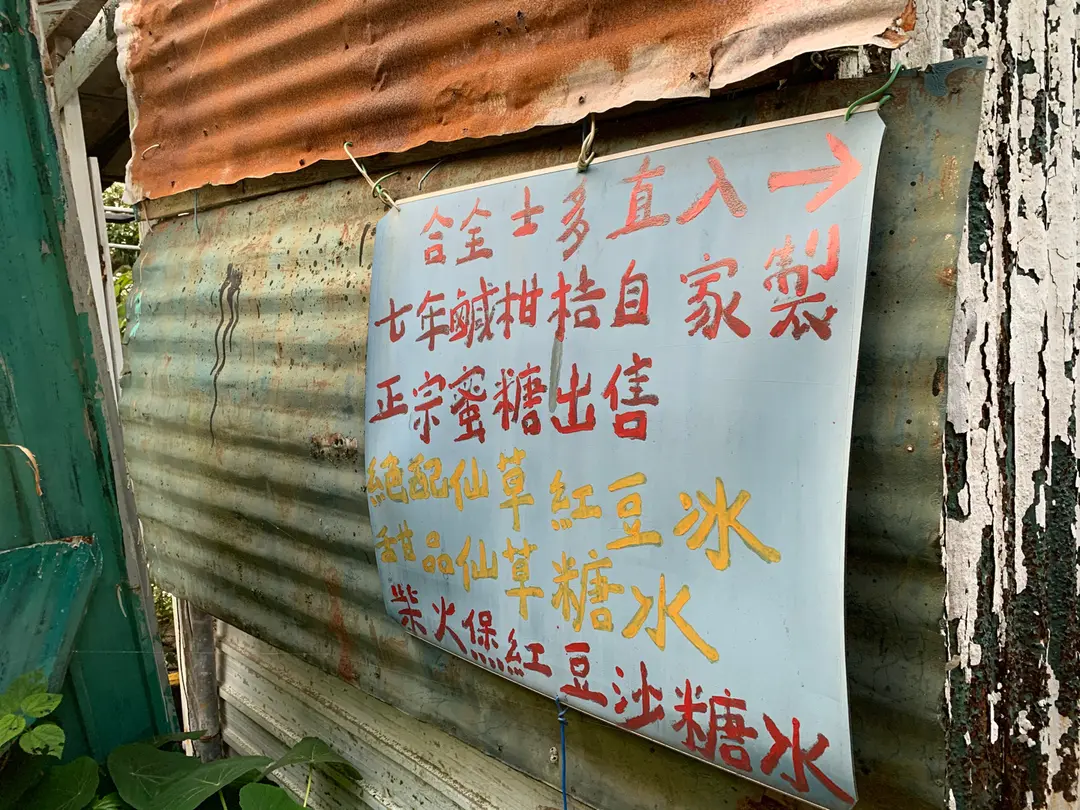 合全士多直入→
七年鹹柑桔自家製
正宗蜜糖出售
絕配仙草紅豆冰
甜品仙草糖水
柴火煲紅豆沙糖水